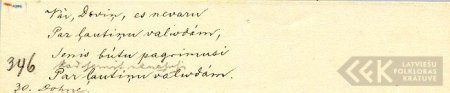 Vai, Deviņ, es nevaru
Par ļautiņu valodām,
Senis būtu pagrimusi
346
Par ļautiņu valodām.
30. Dohne
LATVIEŠU
FOLKLORAS
KRATUVE